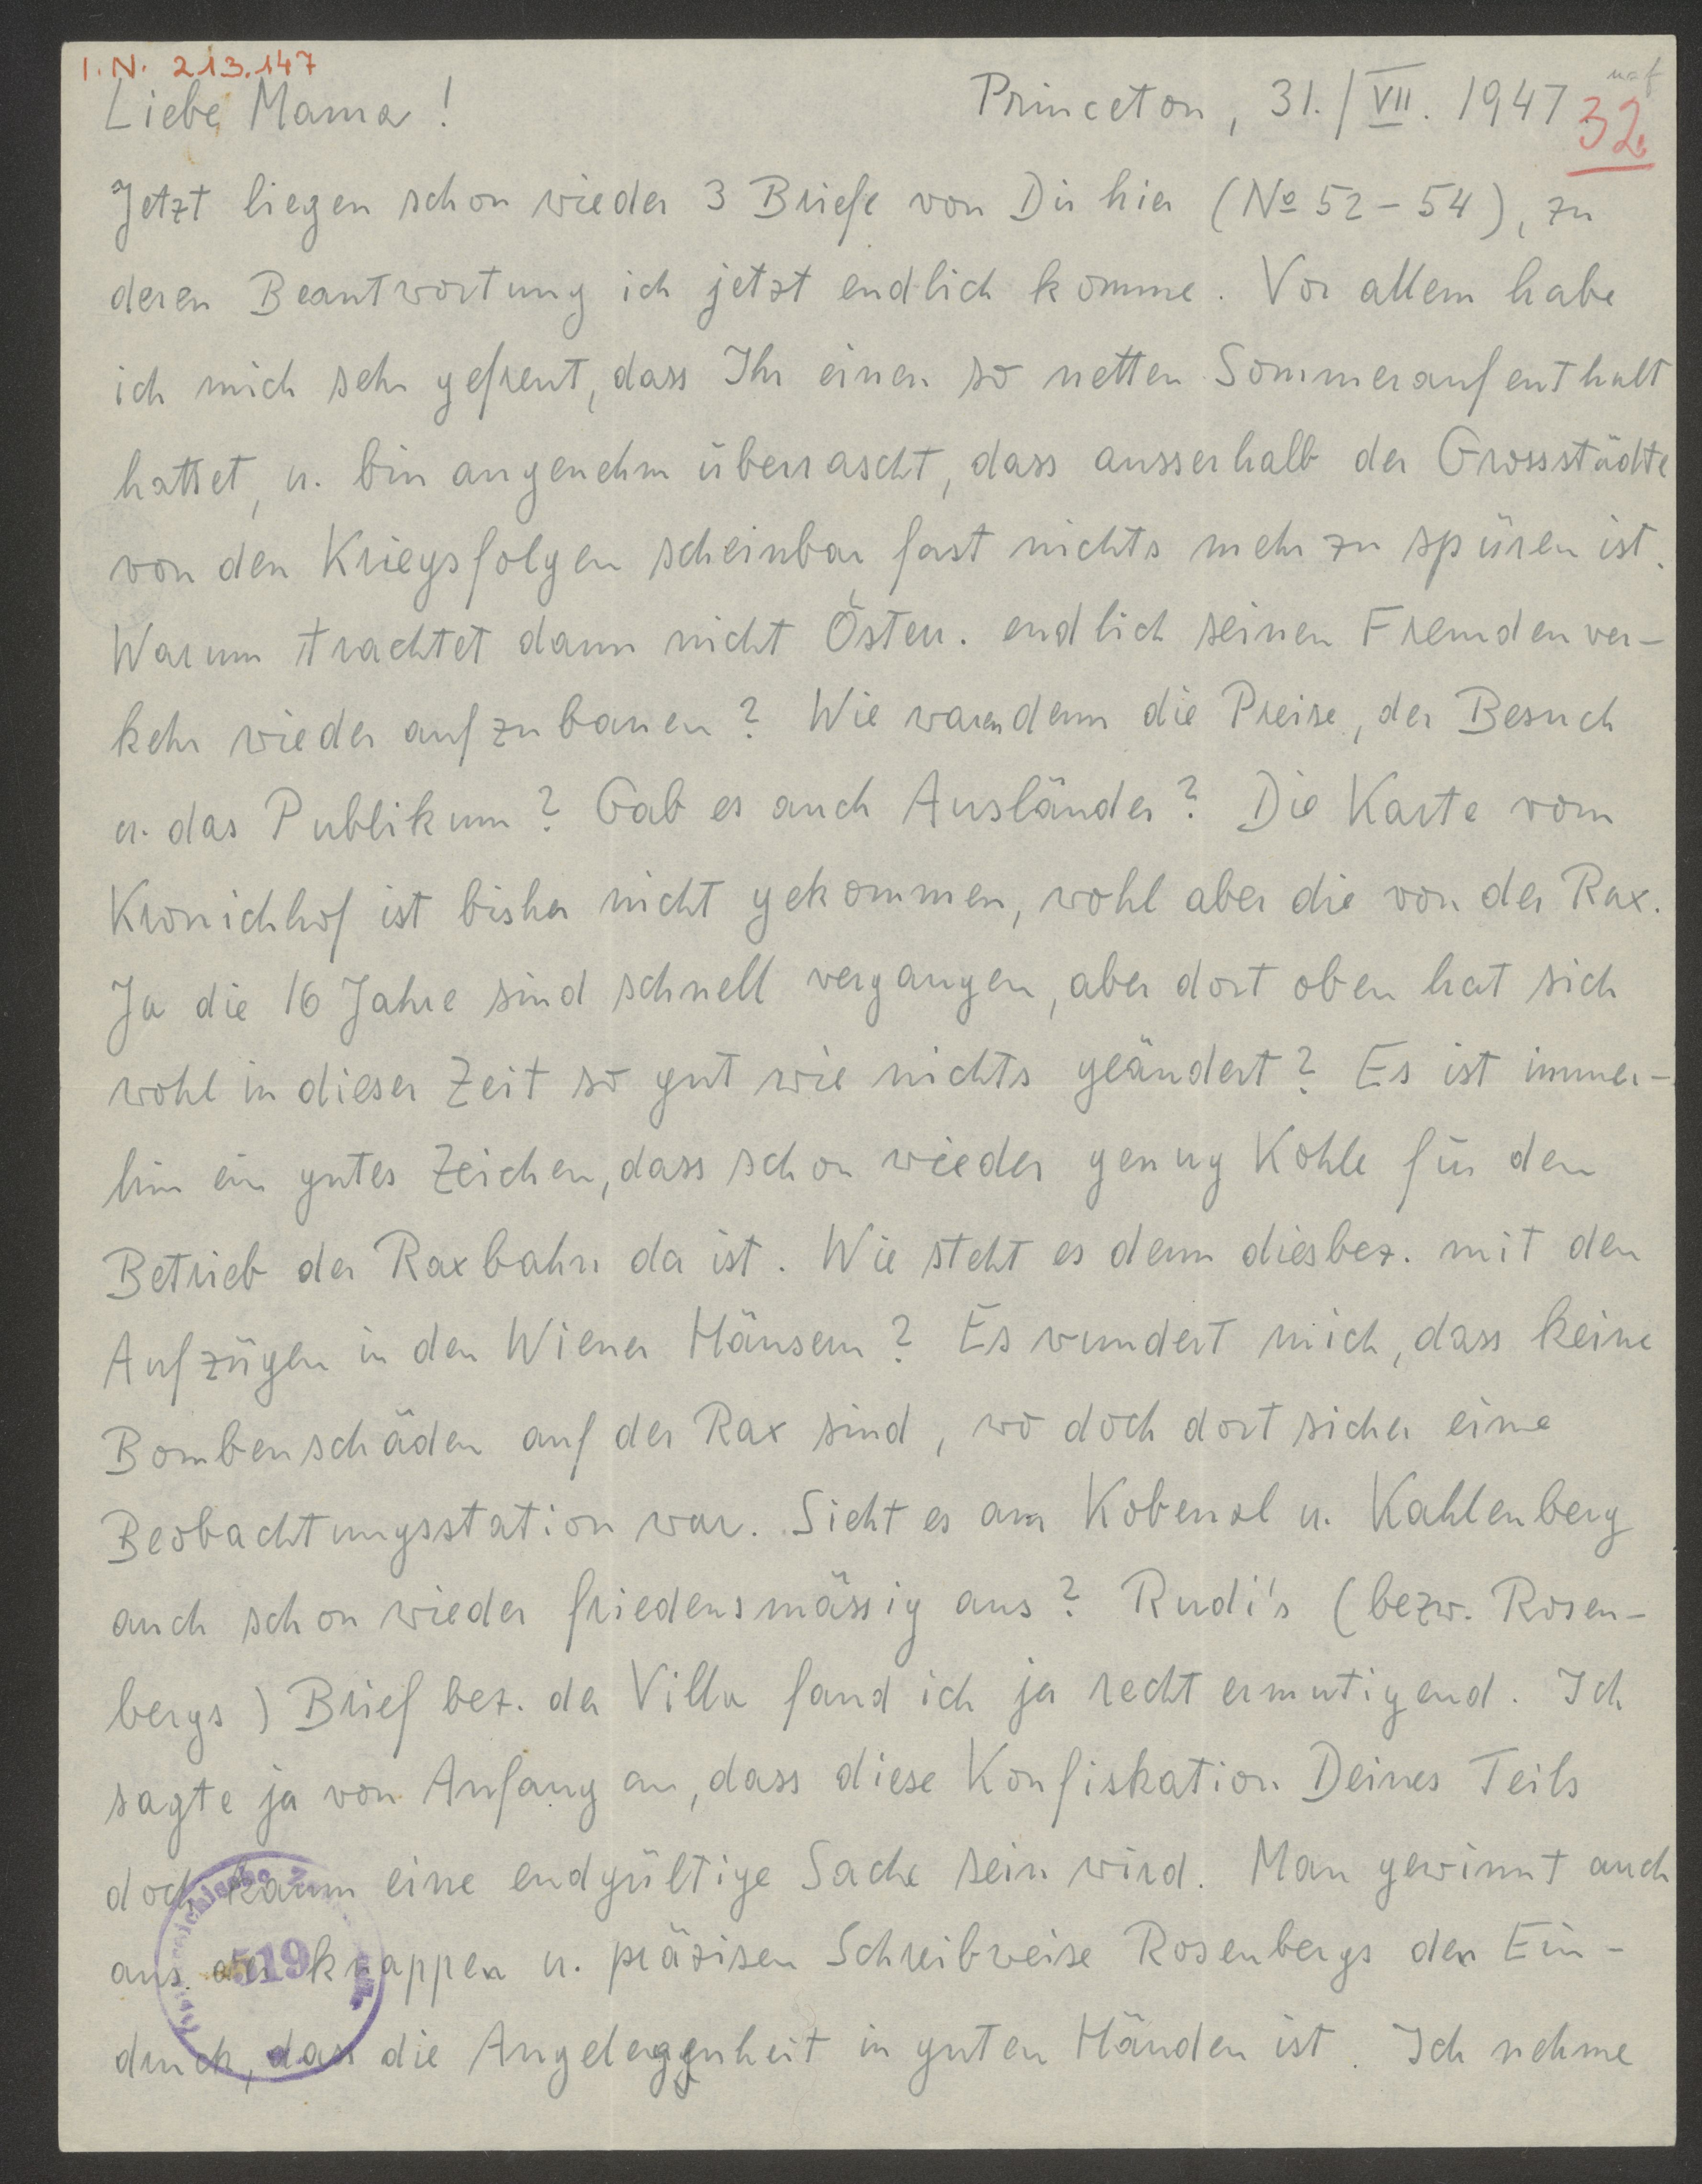 I.N. 213.147
Liebe Mama! Princeton, 31./VII. 1947 32.
Jetzt liegen schon wieder 3 Briefe von Dir hier (No 52-54), zu
deren Beantwortung ich jetzt endlich komme. Vor allem habe
ich mich sehr gefreut, dass Ihr einen so netten Sommeraufenthalt
hattet, u. bin angenehm überrascht, dass ausserhalb der Grossstädte
von den Kriegsfolgen scheinbar fast nichts mehr zu spüren ist.
Warum trachtet dann nicht Österr. endlich seinen Fremdenver-
kehr wieder aufzubauen? Wie waren denn die Preise, der Besuch
u. das Publikum? Gab es auch Ausländer? Die Karte vom
Kronichhof ist bisher nicht gekommen, wohl aber die von der Rax.
Ja die 16 Jahre sind schnell vergangen, aber dort oben hat sich
wohl in dieser Zeit so gut wie nichts geändert? Es ist immer-
hin ein gutes Zeichen, dass schon wieder genug Kohle für den
Betrieb der Raxbahn da ist. Wie steht es denn diesbez. mit den
Aufzügen in den Wiener Häusern? Es wundert mich, dass keine
Bombenschäden auf der Rax sind, wo doch dort sicher eine
Beobachtungsstation war. Sieht es am Kobenzl u. Kahlenberg
auch schon wieder friedensmässig aus? Rudi's (bezw. Rosen-
bergs) Brief bez. der Villa fand ich ja recht ermutigend. Ich
sagte ja von Anfang an, dass diese Konfiskation Deines Teils
doch kaum eine endgültige Sache sein wird. Man gewinnt auch
aus der knappen u. präzisen Schreibweise Rosenbergs den Ein-
druck, dass die Angelegenheit in guten Händen ist. Ich nehme
519